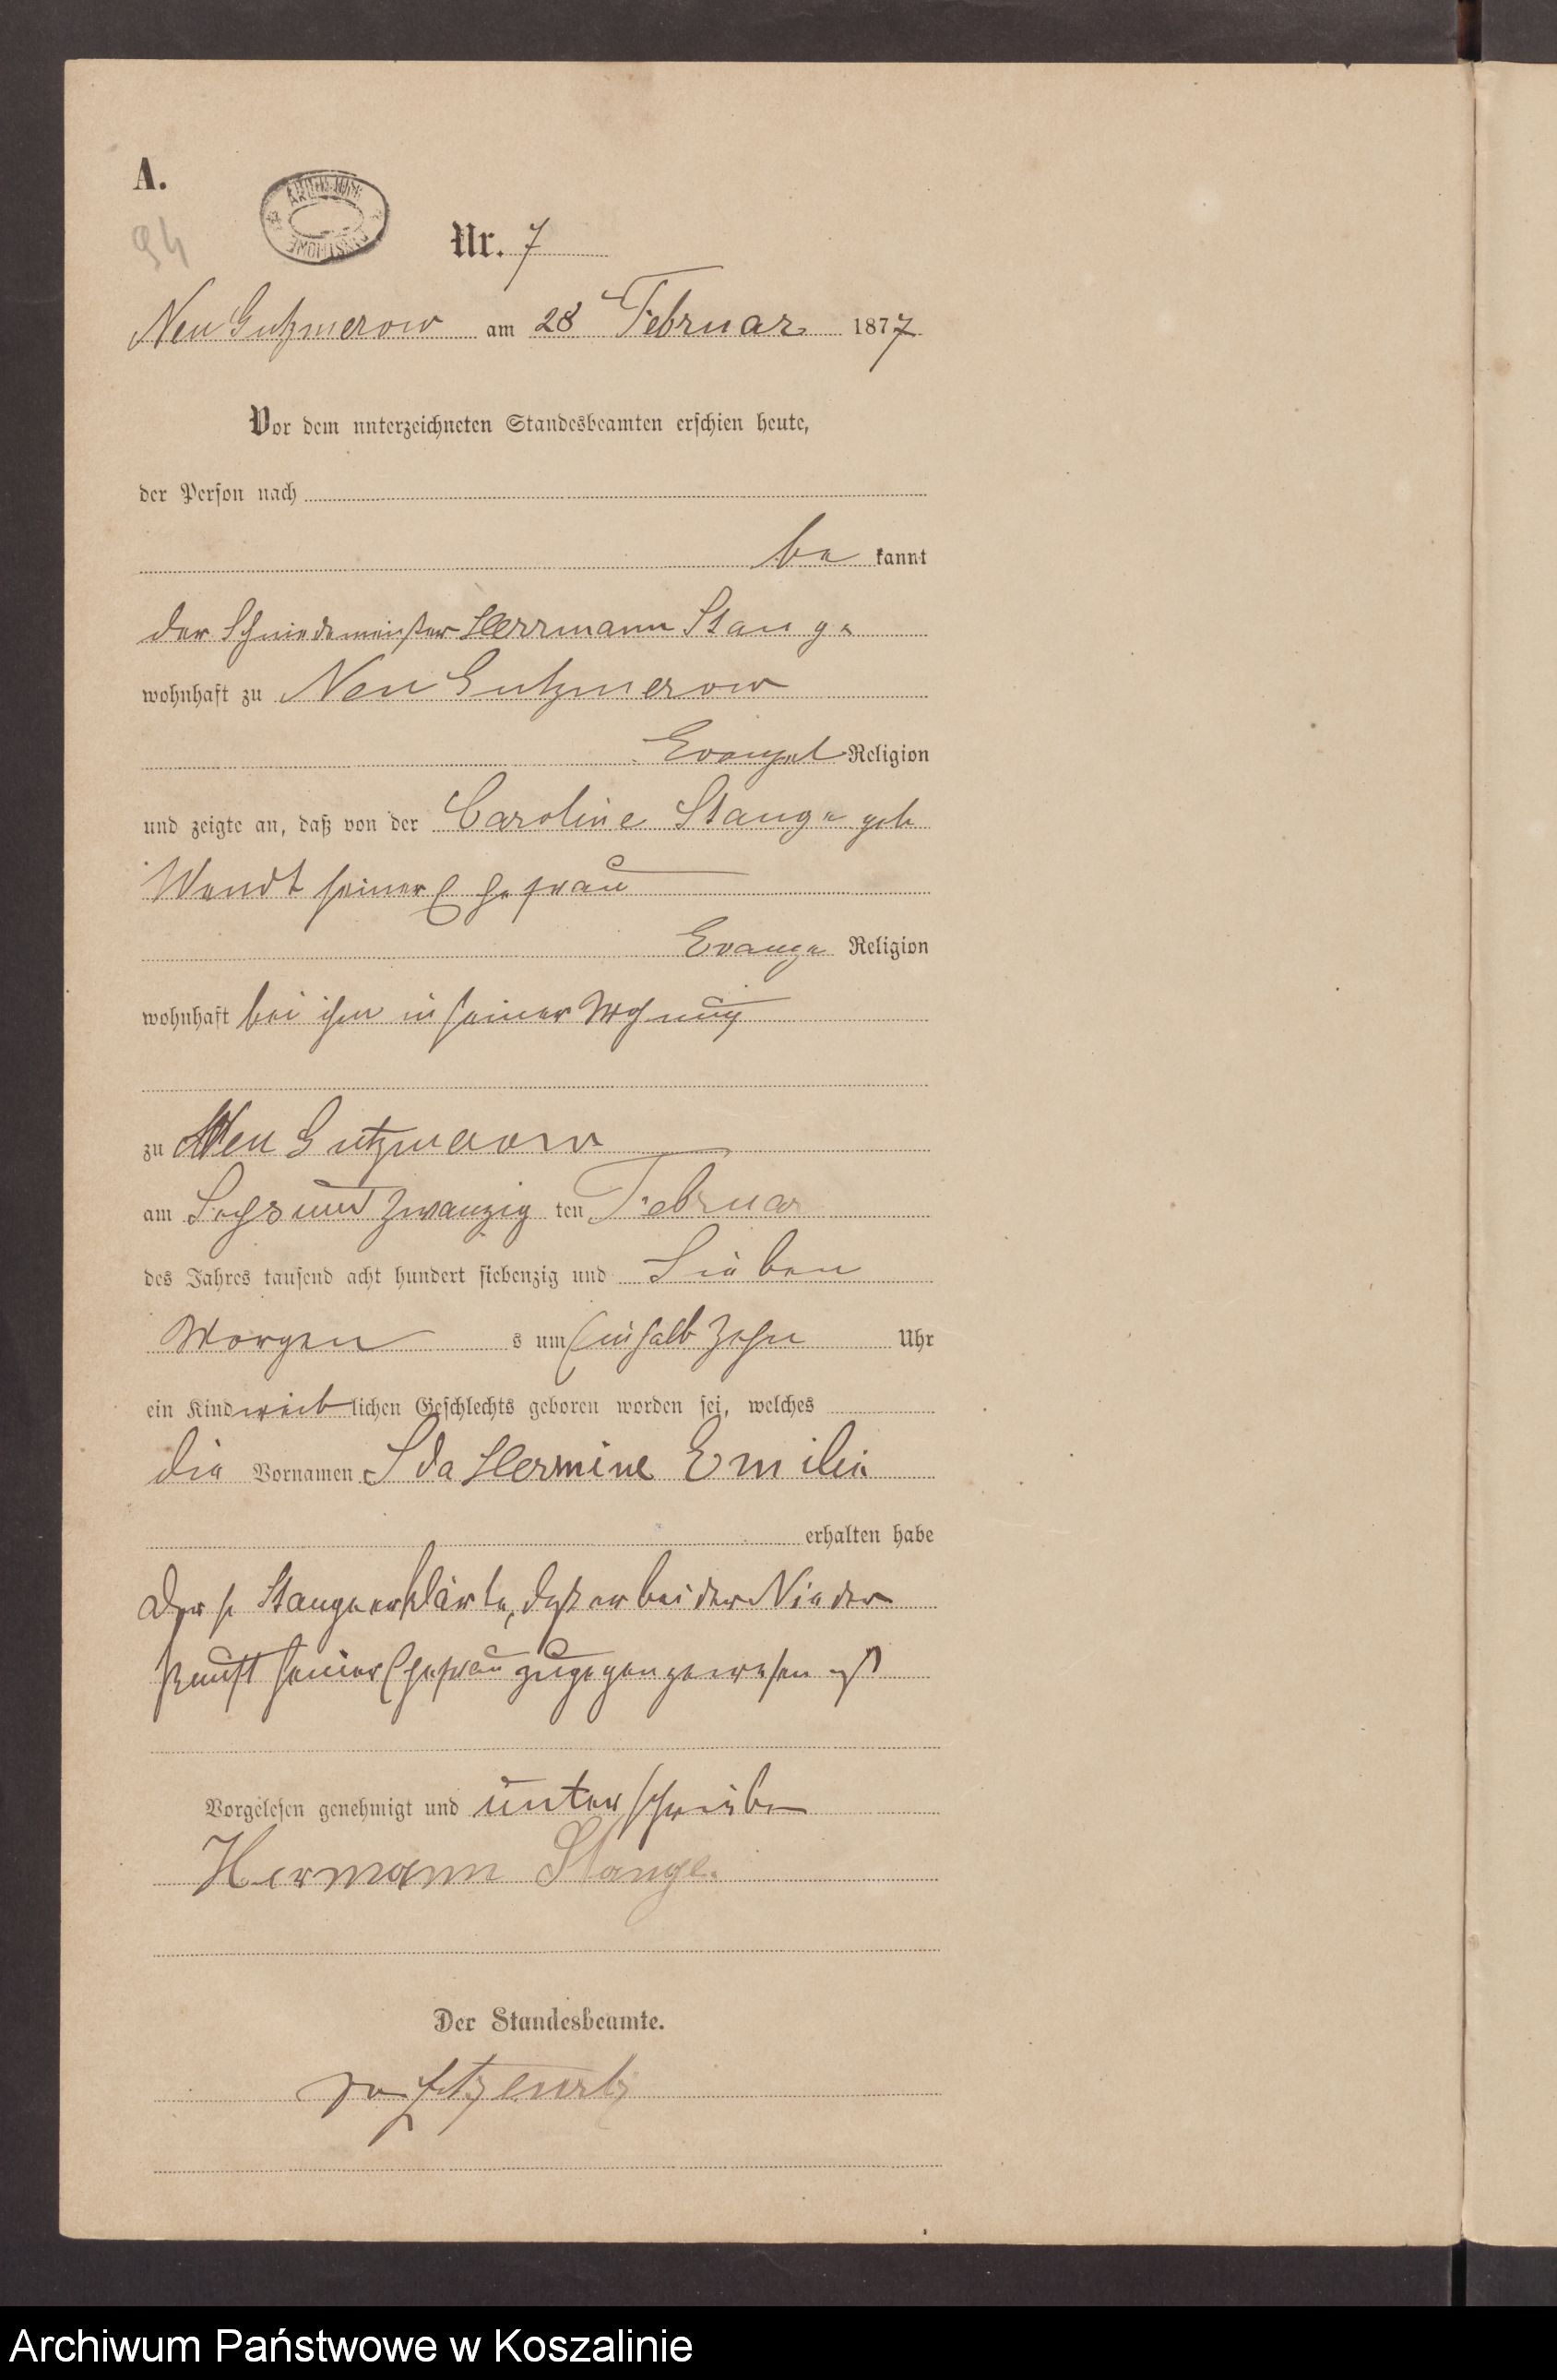 A.
94
Nr. 7
Neu Gutzmerow am 28 Februar 1877
Vor dem unterzeichneten Standesbeamten erschien heute,
der Person nach
be kannt
der Schmiedemeister Herrmann Stange
wohnhaft zu Neu Gutzmerow
Evangel Religion
und zeigte an, daß von der Caroline Stange geb
Wendt seiner Ehefrau
Evange Religion
wohnhaft bei ihm in seiner Wohnung
zu Neu Gutzmerow
am Sechs und zwanzig ten Februar
des Jahres tausend acht hundert siebenzig und Sieben
Morgen s um Einhalb Zehn Uhr
ein Kind weib lichen Geschlechts geboren worden sei, welches
die Vornamen Ida Hermine Emilie
erhalten habe
Stange erklärte, daß er bei der Nieder
kunft seiner Ehefrau zugegen gewesen ist
Vorgelesen genehmigt und unterschrieben
Hermann Stange.
Der Standesbeamte.
Archiwum Państwowe w Koszalinie